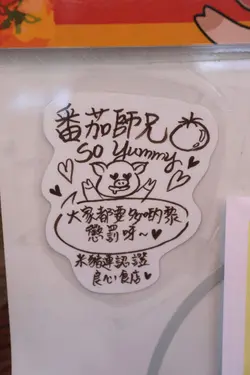 番茄師兄
So Yummy
大家都要多啲黎
懲罰呀~
米豬連認證
良心食店